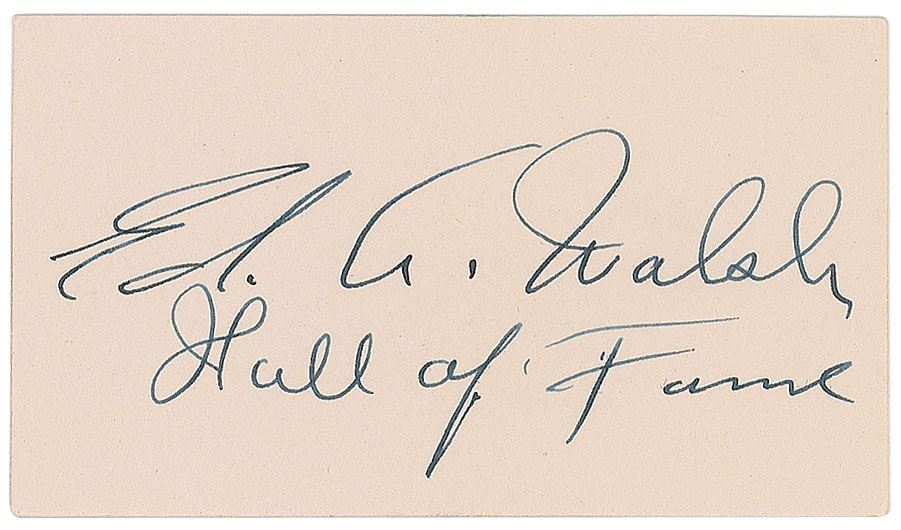 Ed. A. Walsh
Hall of Fame